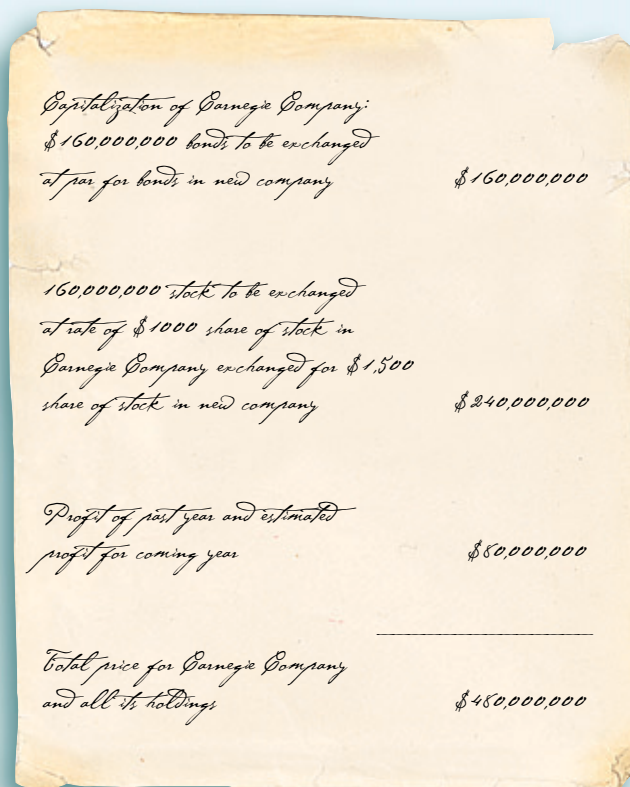 Capitalization of Carnegie Company:
$160,000,000 bonds to be exchanged
at par for bonds in new company
$160,000,000
160,000,000 stock to be exchanged
at rate of $1000 share of stock in
Carnegie Company exchanged for $1,500
share of stock in new company
$240,000,000
Profit of past year and estimated
profit for coming year
$80,000,000
Total price for Carnegie Company
and all its holdings
$480,000,000